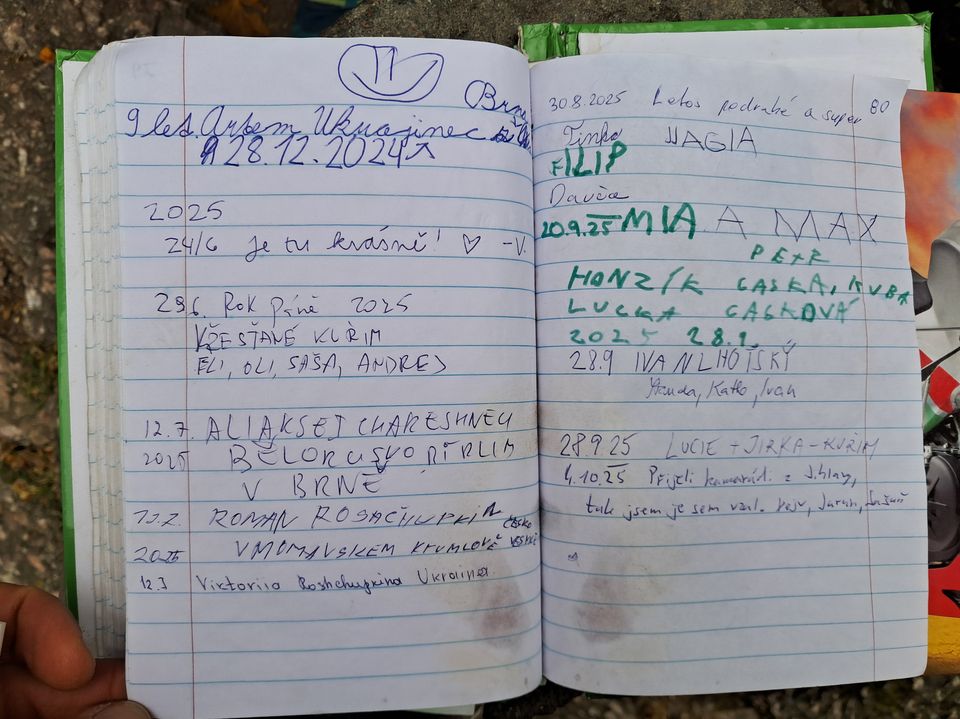 Brno
9 let. Artem Ukrajinec
28.12.2024
2025
24/6 je tu krásně! ♡ -V.
29.6. Rok páně 2025
KŽESŤANÉ KUŘIM
ELI, OLI, SAŠA, ANDREJ
12.7. ALIAKSEJ CHARESHNEU
2025 BĚLORUSKO BĚRLIM
V BRNĚ
12.7. ROMAN ROSAČHUPKIN ČESKO
2025 VMOMAVSKEM KRUMLOVĚ
12.7 Viktoriia Roshchupkina Ukraina
30.8.2025 Letos podruhé a super 80
Tinka MAGIA
FILIP
Davča
20.9.25 MIA A MAX
PETR
HONZÍK CASKA, KUBA
LUCKA CASKOVÁ
2025 28.9.
28.9 IVAN LHOTSKÝ
Standa, Katko, Ivan
28.9.25 LUCIE + JIRKA - KUŘIM
4.10.25 Přijeli kamarádi z Jihlavy,
tak jsem je sem vzal.